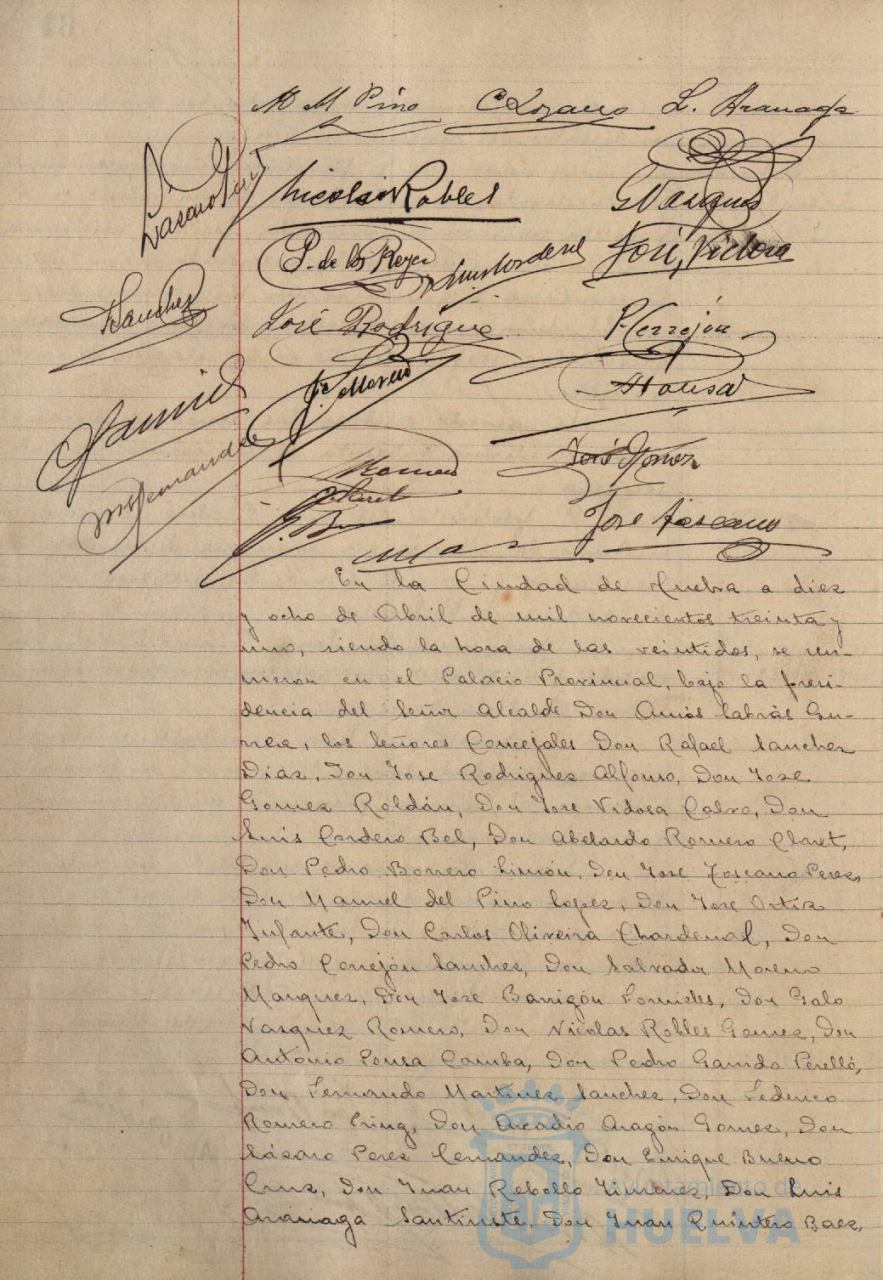 M M Pino C Lozano L. Aranaga
Lazaro
Nicolas Robles G Vazquez
P. de los Reyes Luis Cordero José Vidosa
Sanchez
José Rodrigue P. Cerrejón
J. Moreno A Pousa
Garrido
M Fernandez
Romero José Gomez
Claret
José Toscano
En la Ciudad de Huelva a diez
y ocho de Abril de mil novecientos treinta y
uno, siendo la hora de las veintidos, se reu-
nieron en el Palacio Provincial, bajo la presi-
dencia del Señor Alcalde Don Amós Sabrás Gu-
rrea, los Señores Concejales Don Rafael Sanchez
Diaz, Don Jose Rodriguez Alfonso, Don Jose
Gomez Roldán, Don Jose Vidosa Calvo, Don
Luis Cordero Bel, Don Abelardo Romero Claret,
Don Pedro Borrero Limón, Don Jose Toscano Perez,
Don Manuel del Pino Lopez, Don Jose Ortiz
Infante, Don Carlos Oliveira Chardenal, Don
Pedro Cerrejón Sanchez, Don Salvador Moreno
Marquez, Don Jose Barrigón Fornieles, Don Galo
Vazquez Romero, Don Nicolas Robles Gomez, Don
Antonio Pousa Camba, Don Pedro Garrido Perelló,
Don Fernando Martinez Sanchez, Don Federico
Romero Pring, Don Arcadio Aragón Gomez, Don
Lázaro Perez Hernandez, Don Enrique Bueno
Cruz, Don Juan Rebollo Jimenez, Don Luis
Aranaga Santiuste, Don Juan Quintero Baez,
Ayuntamiento de
HUELVA